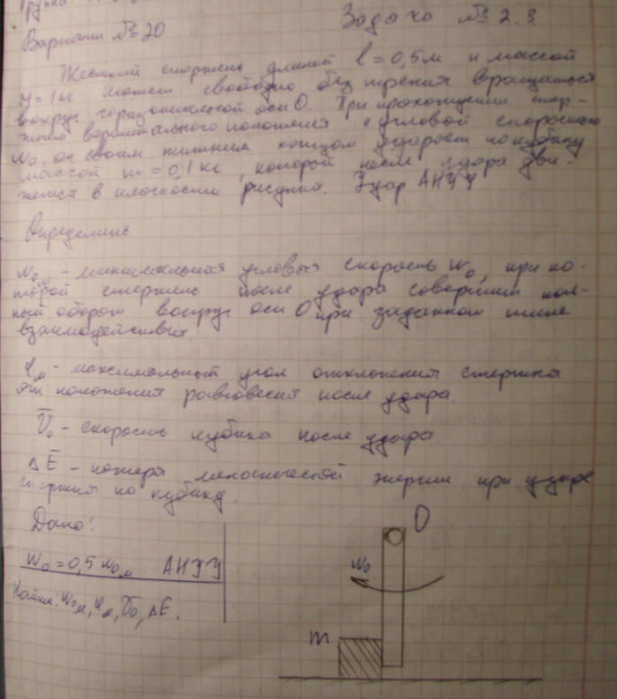 Группа
Задача №2.3
Вариант №20
Жесткий стержень длиной l = 0,5 м и массой
M = 1 кг может свободно без трения вращаться
вокруг горизонтальной оси О. При прохождении стер-
жнем вертикального положения с угловой скоростью
w₀, он своим нижним концом ударяет по кубику
массой m = 0,1 кг, который после удара дви-
жется в плоскости рисунка. Удар АНУУ
Определить
w₀м - минимальная угловая скорость w₀, при ко-
торой стержень после удара совершит пол-
ный оборот вокруг оси О при заданном типе
взаимодействия.
φм - максимальный угол отклонения стержня
от положения равновесия после удара.
V̄₀ - скорость кубика после удара.
ΔE - потеря механической энергии при ударе
стержня по кубику
Дано:
w₀ = 0,5 w₀м АНУУ
Найти: w₀м, φм, V̄₀, ΔE.
O
w₀
m